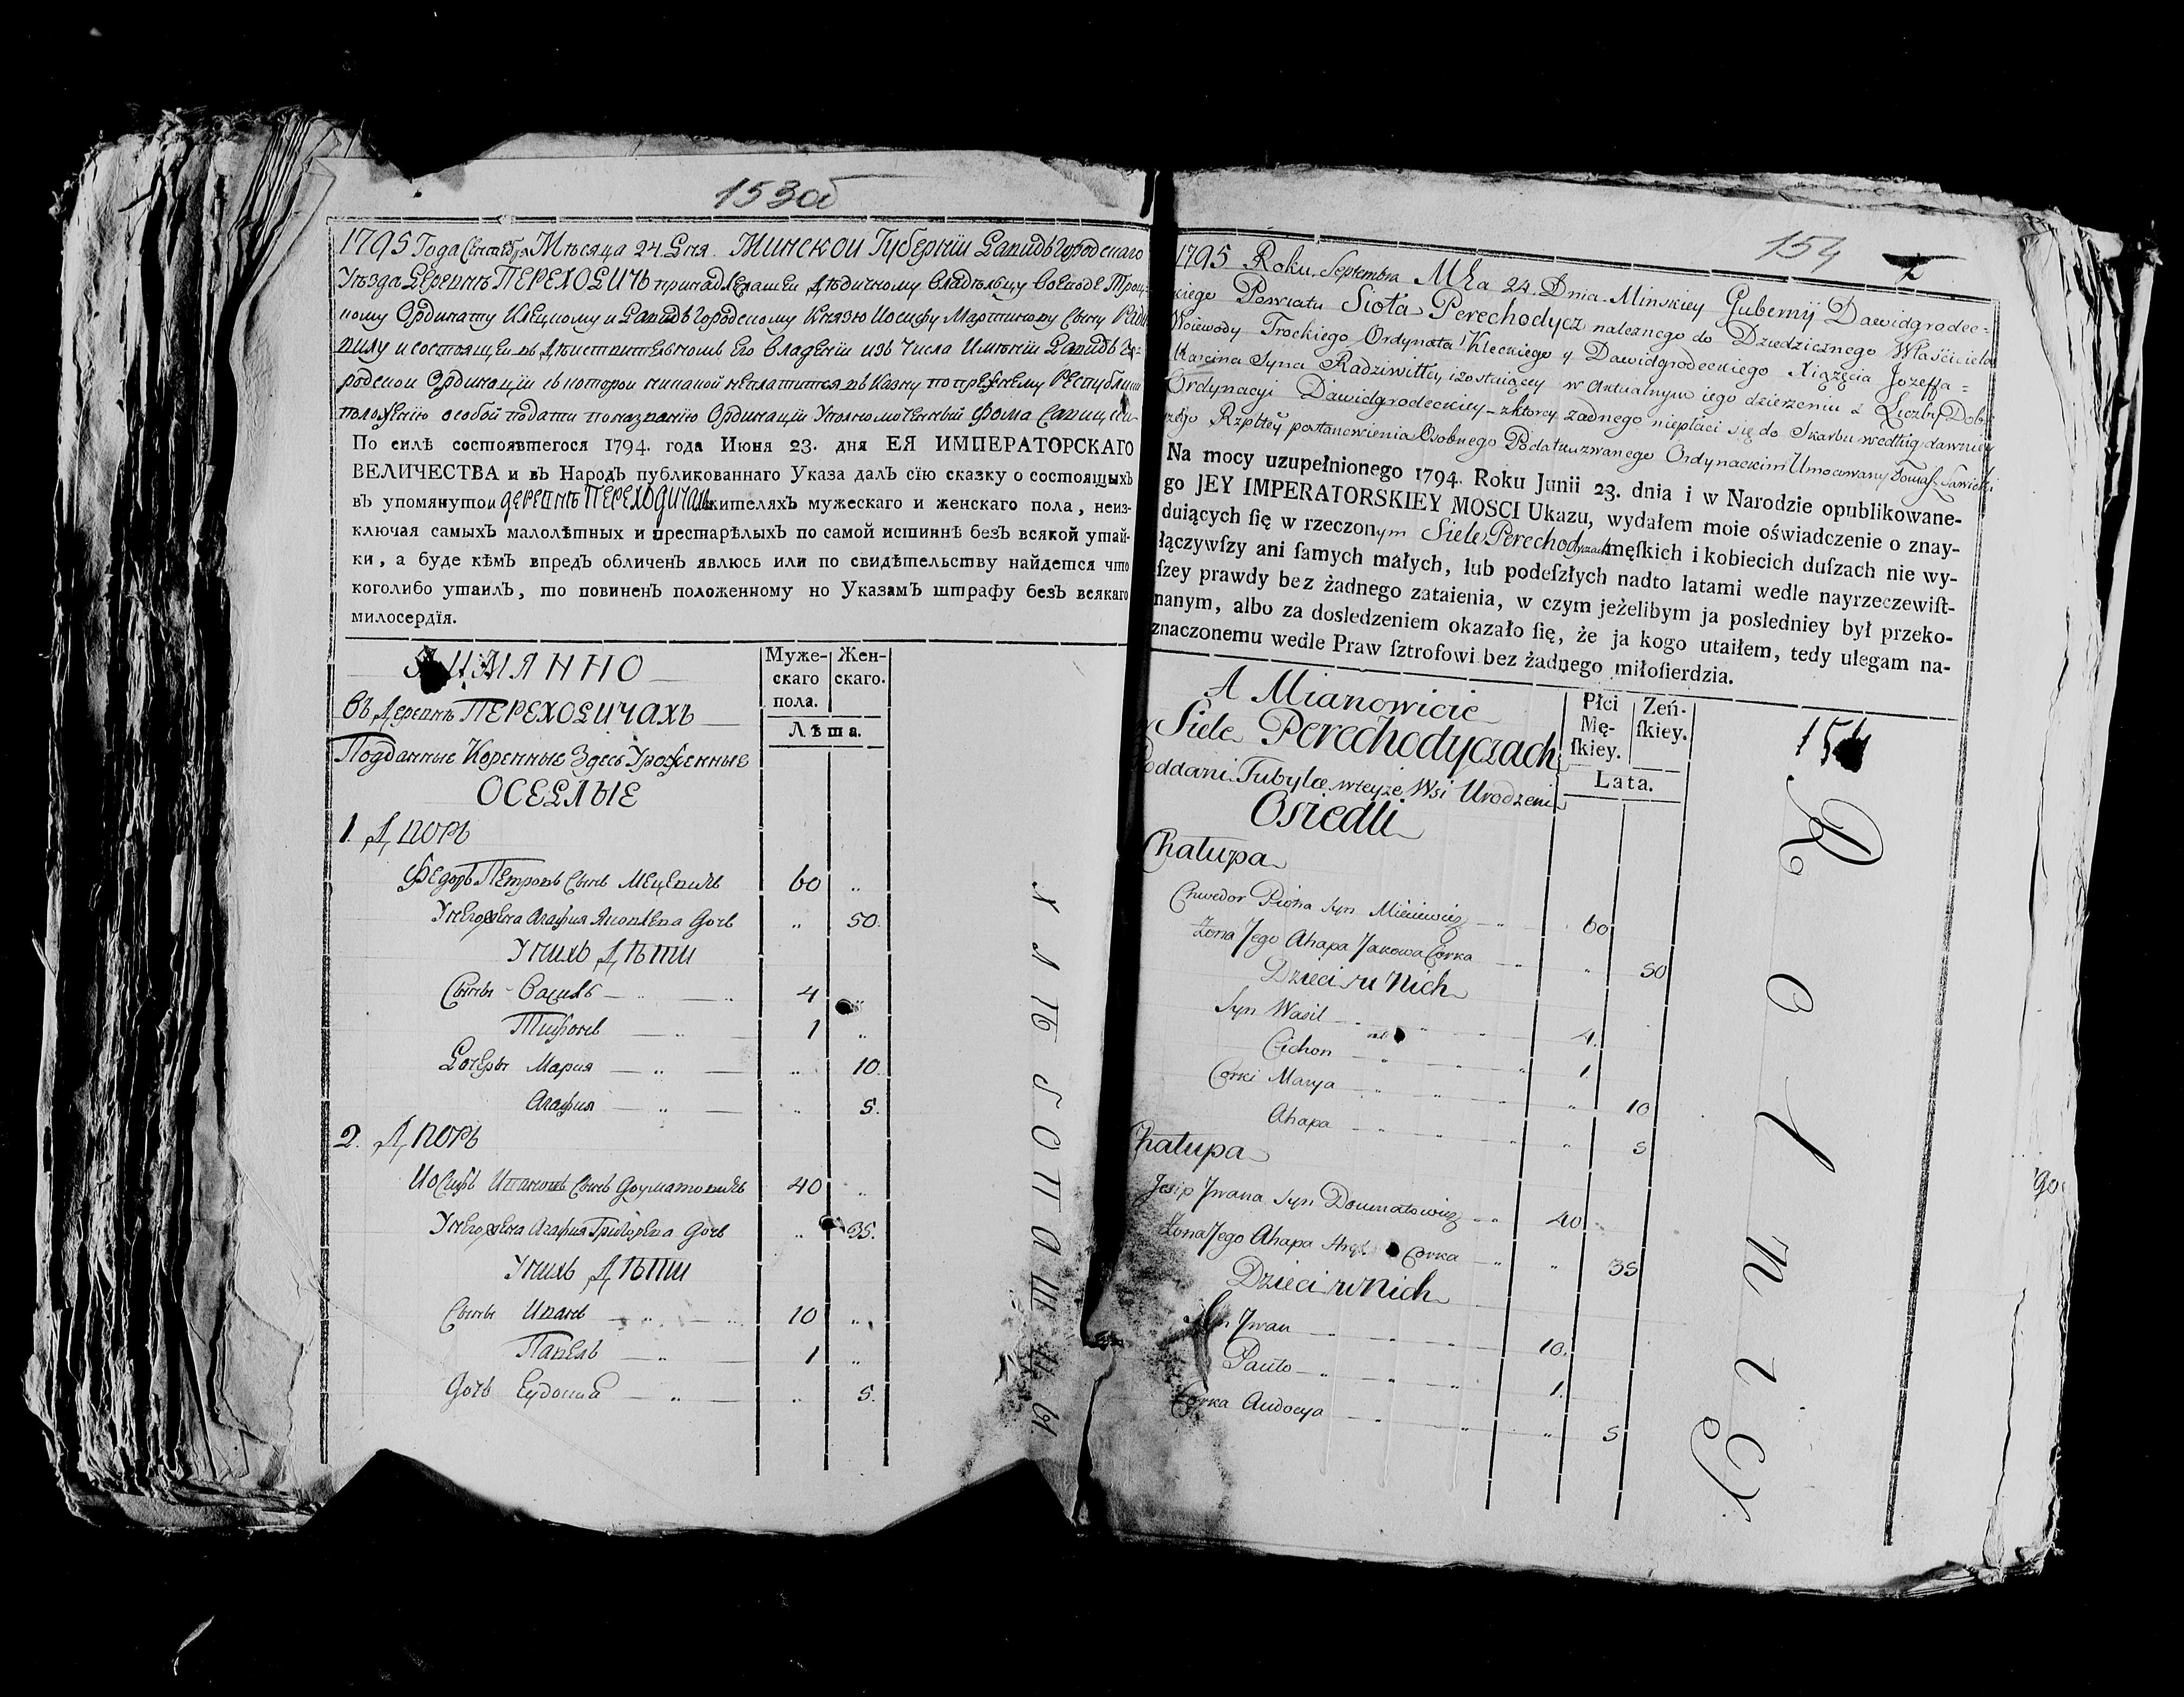 153об
1795 Года Сентября Мѣсяца 24 Дня. Минской Губернїи Давидъгородскаго
Уѣзда Деревнѣ ПЕРЕХОДИЧЬ принадлежащеи Дѣдичному Владѣльцу Воеводе Троц-
кому Ординату Клецкому и Давидъгородскому Князю Иосифу Мартинову Сыну Радзи
вилу и состоящеи въ Дѣиствительномъ Его Владенїи изъ Числа Имѣнїи Давидъ Го-
родскои Ординацїи съ которои никакой неплатится въ Казну по прежнему Республики
положенїю особой подати по названїю Ординацїи Уполномоченный Фома Савицкїи
По силѣ состоявшегося 1794. года Июня 23. дня ЕЯ ИМПЕРАТОРСКАГО
ВЕЛИЧЕСТВА и въ Народъ публикованнаго Указа далъ сїю сказку о состоящыхъ
въ упомянутои деревнѣ ПЕРЕХОДИЧАХЪ жителяхъ мужескаго и женскаго пола, неиз-
ключая самыхъ малолѣтных и престарѣлыхъ по самой истиннѣ безъ всякой утай-
ки, а буде кѣмъ впредъ обличенъ явлюсь или по свидѣтельству найдется что
коголибо утаилъ, то повиненъ положенному по Указамъ штрафу безъ всякаго
милосердїя.
А ИМЯННО
Муже-
скаго
пола.
Жен-
скаго.
Лѣта.
Въ Деревнѣ ПЕРЕХОДИЧАХЪ
Подданные Коренные Здесь Урожденные
ОСЕДЛЫЕ
1. Дворъ
Федоръ Петровъ Сынъ Мецевичъ 60 „
У него жена Агафия Яковлева Дочь „ 50.
У нихъ Дѣти
Сыны Василь 4 „
Тифонъ 1 „
Дочеры Мария „ 10.
Агафия „ 5.
2. Дворъ
Иосифъ Ивановъ Сынъ Доуматовичъ 40 „
У него жена Агафия Григорева Дочь „ 35.
У нихъ Дѣти
Сыны Иванъ 10 „
Павелъ 1 „
Дочь Еудокиа „ 5.
ХЛѢБОПАШЦЫ.
154
1795 Roku Septembra Mca 24. Dnia. Minskiey Gubernij Dawidgrodec-
kiego Powiatu Sioła Perechodycz należnego do Dziedzicznego Właściciela
Woiewody Trockiego Ordynata Kleckiego y Dawidgrodeckiego Xiążęcia Jozeffa
Marcina Syna Radziwiłły, izostaiącey w Aktualnym iego dzierzeniu z Liczby Dobr
Ordynacyi Dawidgrodeckiey zktorey żadnego niepłaci się do Skarbu według dawniey
szego Rzpltey postanowienia Osobnego Podatku zwanego Ordynackim Umocowany Tomasz Sawicki
Na mocy uzupełnionego 1794. Roku Junii 23. dnia i w Narodzie opublikowane-
go JEY IMPERATORSKIEY MOSCI Ukazu, wydałem moie oświadczenie o znay-
duiących ſię w rzeczonym Siele Perechodyczach męſkich i kobiecich duſzach nie wy-
łączywſzy ani ſamych małych, lub podeſzłych nadto latami wedle nayrzeczewiſt-
ſzey prawdy bez żadnego zataienia, w czym jeżelibym ja posledniey był przeko-
nanym, albo za dosledzeniem okazało ſię, że ja kogo utaiłem, tedy ulegam na-
znaczonemu wedle Praw ſztrofowi bez żadnego miłoſierdzia.
A Mianowicie
Płci
Mę-
ſkiey.
Zeń-
ſkiey.
Lata.
Siele Perechodyczach
Poddani Tubylce wteyże Wsi Urodzeni
Osiedli
Chałupa
Chwedor Piotra Syn Miciewicz 60
Żona Jego Ahapa Jakowa Corka „ 50
Dzieci u Nich
Syn Wasil 4.
Cichon 1.
Corki Marya „ 10
Ahapa „ 5
Chałupa
Josip Jwana Syn Doumatowicz 40
Żona Jego Ahapa Corka „ 35
Dzieci u Nich
Syn Jwan 10.
Pauło 1.
Corka Audocya „ 5
154
Rolnicy